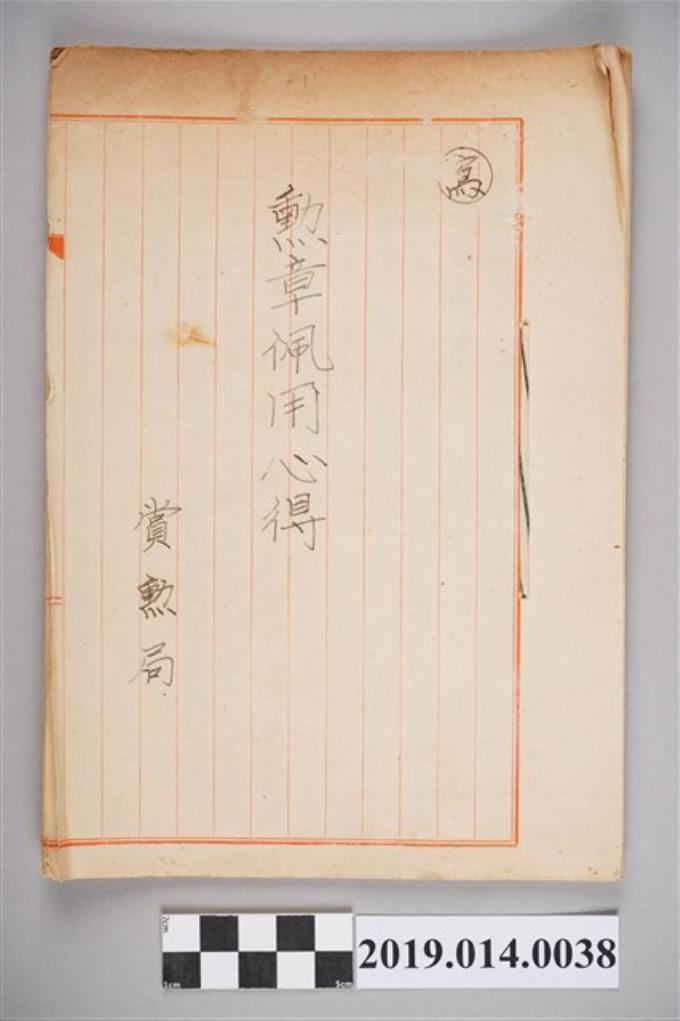 寫
勳章佩用心得
賞勲局
2cm
1cm
5cm
2019.014.0038